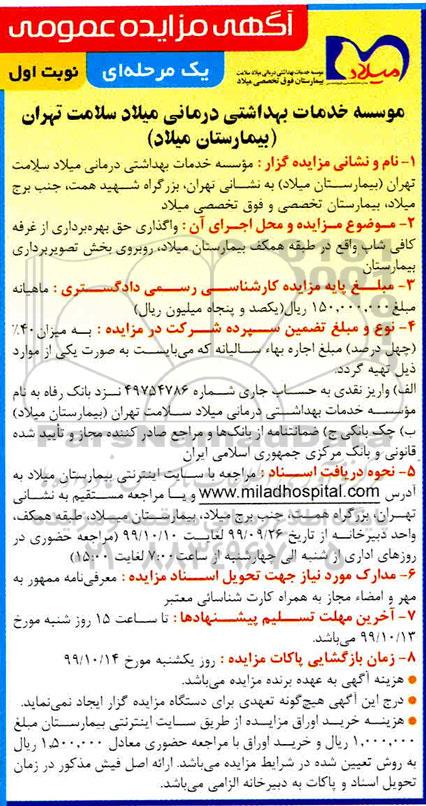 آگهی مزایده عمومی
یک مرحله‌ای
نوبت اول
میلاد
موسسه خدمات بهداشتی درمانی میلاد سلامت تهران
بیمارستان فوق تخصصی میلاد
موسسه خدمات بهداشتی درمانی میلاد سلامت تهران
(بیمارستان میلاد)
۱- نام و نشانی مزایده گزار : مؤسسه خدمات بهداشتی درمانی میلاد سلامت
تهران (بیمارستان میلاد) به نشانی تهران، بزرگراه شهید همت، جنب برج
میلاد، بیمارستان تخصصی و فوق تخصصی میلاد
۲- موضوع مزایده و محل اجرای آن : واگذاری حق بهره‌برداری از غرفه
کافی شاپ واقع در طبقه همکف بیمارستان میلاد، روبروی بخش تصویربرداری
بیمارستان
۳- مبلغ پایه مزایده کارشناسی رسمی دادگستری : ماهیانه
مبلغ ۱۵۰,۰۰۰,۰۰۰ ریال(یکصد و پنجاه میلیون ریال)
۴- نوع و مبلغ تضمین سپرده شرکت در مزایده : به میزان ۴۰٪
(چهل درصد) مبلغ اجاره بهاء سالیانه که می‌بایست به صورت یکی از موارد
ذیل تهیه گردد.
الف) واریز نقدی به حساب جاری شماره ۴۹۷۵۴۷۸۶ نزد بانک رفاه به نام
مؤسسه خدمات بهداشتی درمانی میلاد سلامت تهران (بیمارستان میلاد)
ب) چک بانکی ج) ضمانتنامه از بانک‌ها و مراجع صادر کننده مجاز و تأیید شده
قانونی و بانک مرکزی جمهوری اسلامی ایران
۵- نحوه دریافت اسناد : مراجعه با سایت اینترنتی بیمارستان میلاد به
آدرس www.miladhospital.com و یا مراجعه مستقیم به نشانی
تهران، بزرگراه همت، جنب برج میلاد، بیمارستان میلاد، طبقه همکف،
واحد دبیرخانه از تاریخ ۹۹/۰۹/۲۶ لغایت ۹۹/۱۰/۱۰ (مراجعه حضوری در
روزهای اداری از شنبه الی چهارشنبه از ساعت ۷:۰۰ لغایت ۱۵:۰۰)
۶- مدارک مورد نیاز جهت تحویل اسناد مزایده : معرفی‌نامه ممهور به
مهر و امضاء مجاز به همراه کارت شناسائی معتبر
۷- آخرین مهلت تسلیم پیشنهادها : تا ساعت ۱۵ روز شنبه مورخ
۹۹/۱۰/۱۳ می‌باشد.
۸- زمان بازگشایی پاکات مزایده : روز یکشنبه مورخ ۹۹/۱۰/۱۴
• هزینه آگهی به عهده برنده مزایده می‌باشد.
• درج این آگهی هیچ‌گونه تعهدی برای دستگاه مزایده گزار ایجاد نمی‌نماید.
• هزینه خرید اوراق مزایده از طریق سایت اینترنتی بیمارستان مبلغ
۱,۰۰۰,۰۰۰ ریال و خرید اوراق با مراجعه حضوری معادل ۱,۵۰۰,۰۰۰ ریال
به روش تعیین شده در شرایط مزایده می‌باشد. ارائه اصل فیش مذکور در زمان
تحویل اسناد و پاکات به دبیرخانه الزامی می‌باشد.